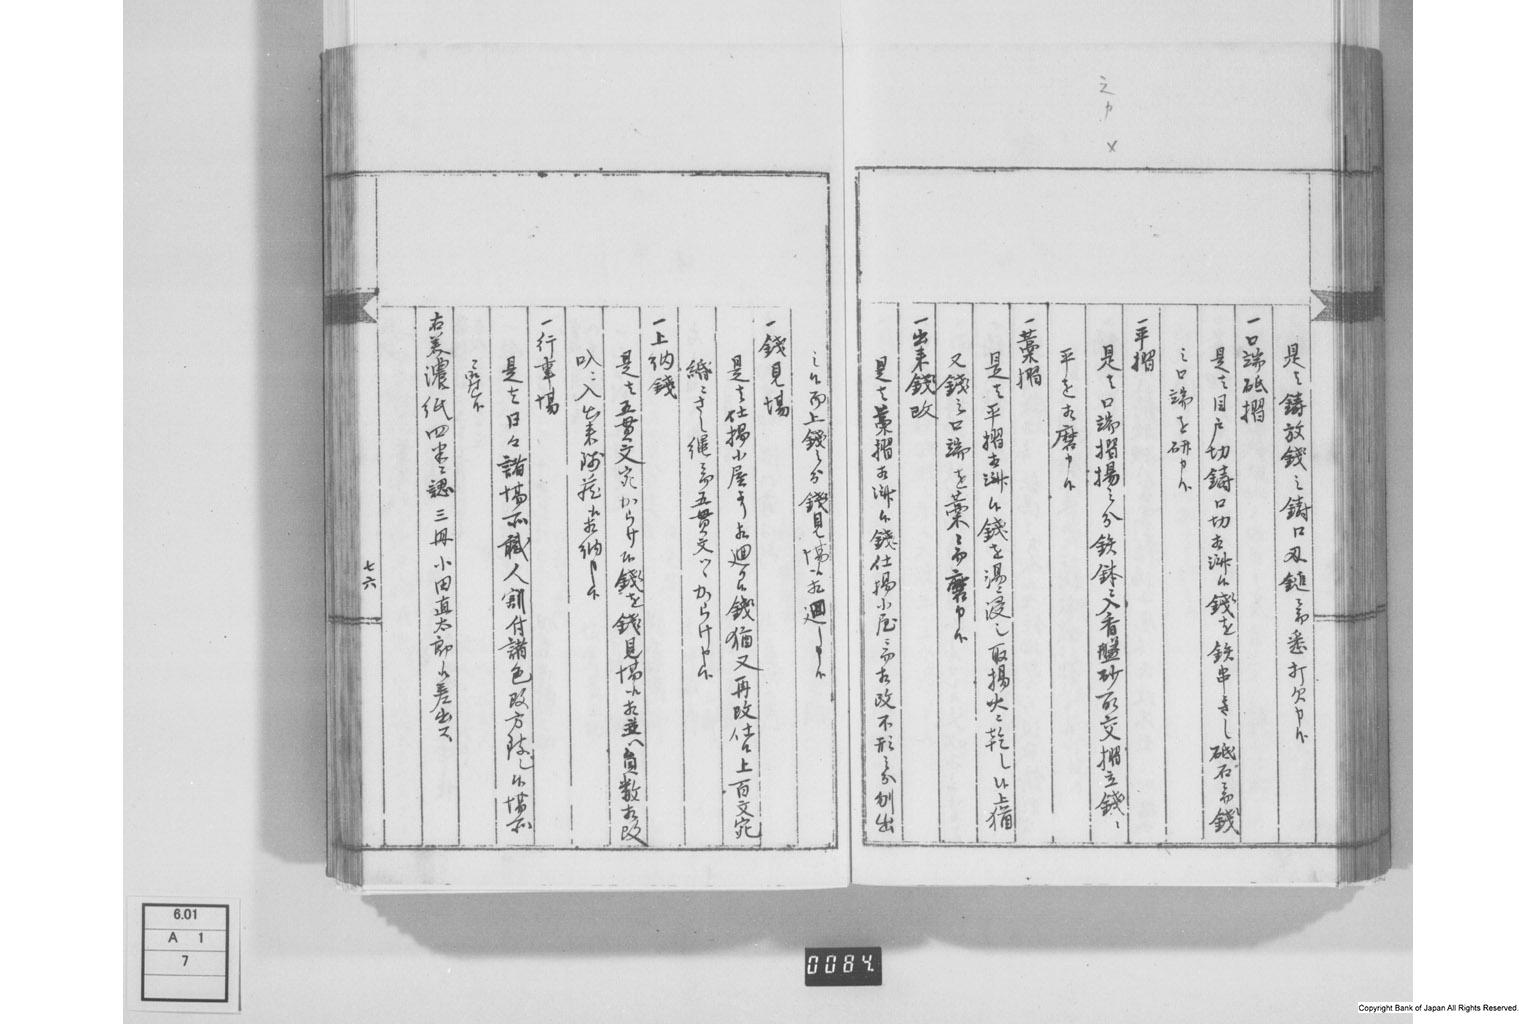 是ハ鋳放銭之鋳口刄鎚ニ而悉打欠申候
一口端砥摺
是ハ目戸切鋳口切相済候銭を鉄串ニさし砥石ニ而銭
之口端を研申候
一平摺
是ハ口端摺揚之分鉄鉢ニ入香盤砂取交摺立銭ニ
平を相磨申候
一藁摺
是ハ平摺相済候銭を湯ニ浸し取揚火ニ乾し候上猶
又銭之口端を藁ニ而磨申候
一出来銭改
是ハ藁摺相済候銭仕揚小屋ニ而相改不形之分別出
し候而上銭之分銭見場江相廻し申候
一銭見場
是ハ仕揚小屋より相廻候銭猶又再改仕候上百文宛
緡ニさし縄ニ而五貫文ツヽからけ申候
一上納銭
是ハ五貫文宛からけ候銭を銭見場江相並へ員数相改
叺ニ入出来改蔵江相納申候
一行事場
是ハ日々諸場所職人割付諸色改方致し候場所
ニ御座候
右美濃紙四半ニ認三冊小田直太郎江差出ス
七六
6.01
A 1
7
0084
Copyright Bank of Japan All Rights Reserved.